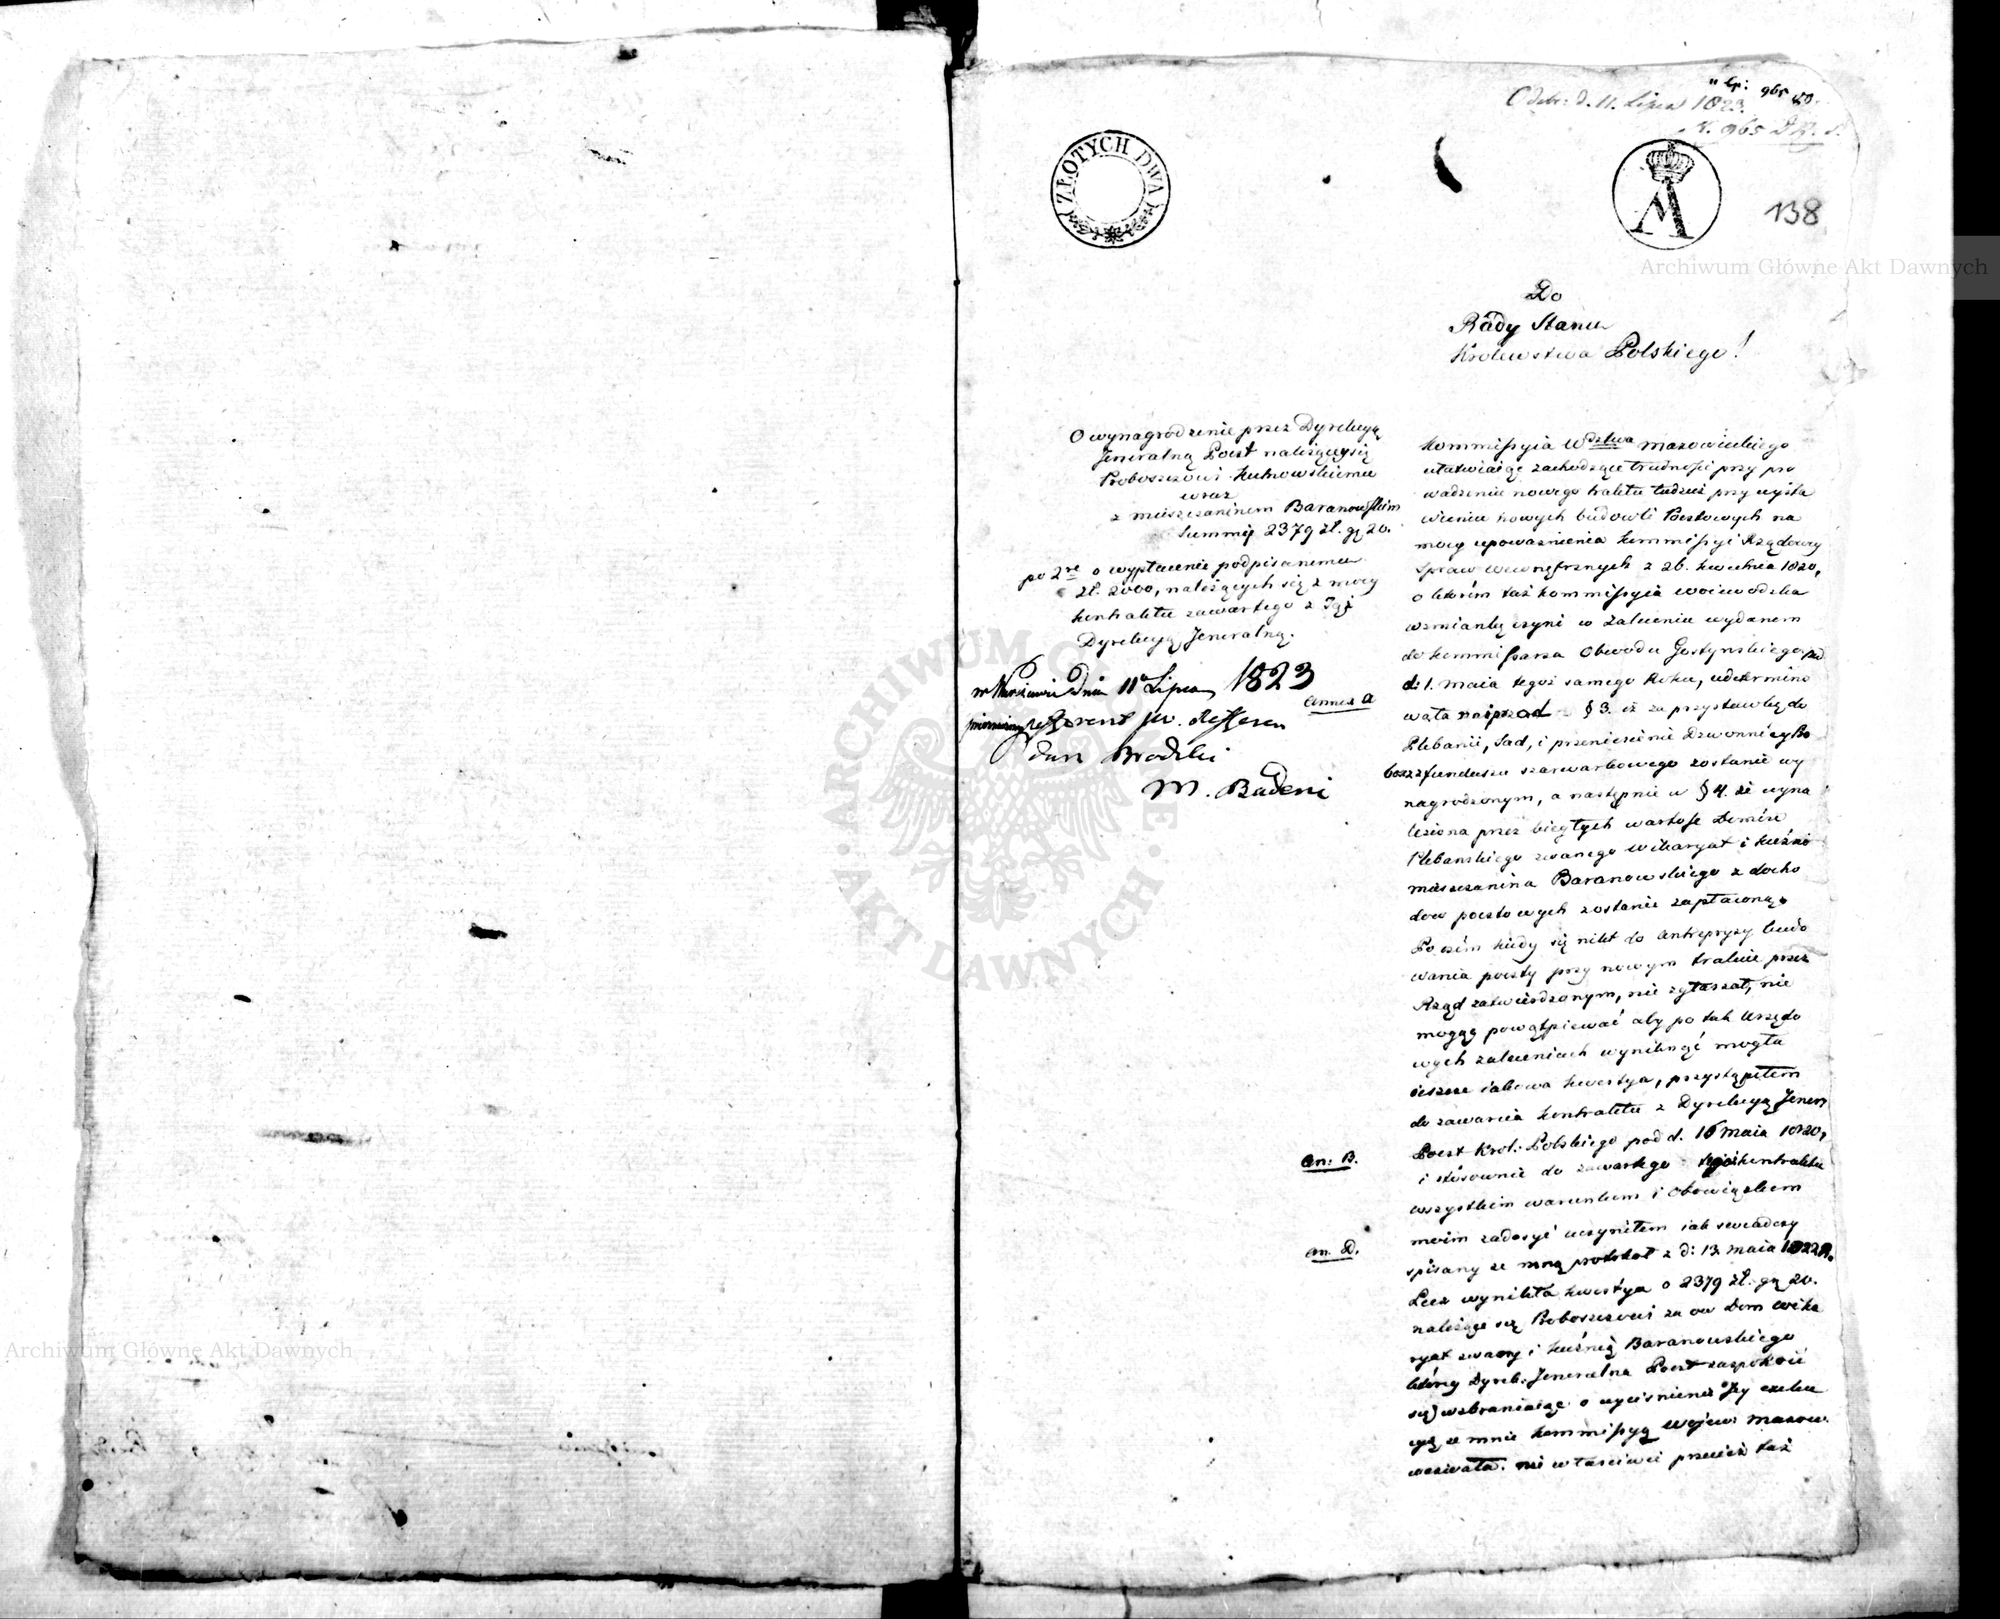 Lp: 965
Odebr: d. 11. Lipca 1823.
N. 965
ZŁOTYCH DWA
138
Do
Rady Stanu
Krolewstwa Polskiego!
O wynagrodzenie przez Dyrekcyą
Jeneralną Poczt należącey się
Proboszczowi Kutnowskiemu
wraz
z mieszczaninem Baranowskim
Summy 2379 zł. gr 20.
po 2re o wypłacenie podpisanemu
zł. 2000, należących się z mocy
kontraktu zawartego z Tąż
Dyrekcyą Jeneralną.
w Warszawie Dnia 11o Lipca 1823
Referent JW. Reffren
Jan Brodzki
M. Badeni
Annex a
Kommissyia Wdztwa Mazowieckiego
ułatwiaiąc zachodzące trudności przy pro
wadzeniu nowego traktu tudzież przy wysta
wieniu nowych budowli Pocztowych na
mocy upoważnienia Kommissyi Rządowey
Spraw wewnętrznych z 26. Kwietnia 1820,
o którém taż Kommissyia woiewodzka
wzmiankę czyni w Zaleceniu wydanem
do Kommissarza Obwodu Gostynskiego pod
d: 1. Maia tegoż samego Roku, udetermino
wała naiprzod § 3. iż za przystawkę do
Plebanii, Sad, i przeniesienie Dzwonnicy Pro
boszcz z funduszu szarwarkowego zostanie wy
nagrodzonym, a następnie w § 4. że wyna
leziona przez biegłych wartość Domu
Plebanskiego zwanego Wikaryat i kuźni
mieszczanina Baranowskiego z docho
dow pocztowych zostanie zapłaconą.
Po czém kiedy się nikt do antrepryzy budo
wania poczty przy nowym trakcie przez
Rząd zatwierdzonym, nie zgłaszał, nie
mogąc powątpiewać aby po tak Urzędo
wych zaleceniach wyniknąć mogła
ieszcze iakowa kwestya, przystąpiłem
do zawarcia kontraktu z Dyrekcyą Jener
An: B.
Poczt Krol: Polskiego pod d. 16 Maia 1820,
i stósownie do zawartego tegoż kontraktu
wszystkim warunkom i obowiązkom
moim zadosyć uczyniłem iak swiadczy
An. D.
spisany ze mną protokoł z d: 13 Maia 1822 R.
Lecz wynikła kwestya o 2379 zł. gr 20.
należące się Proboszczowi za ow Dom wika
ryat zwany i kuźnią Baranowskiego
którey Dyrek: Jeneralna Poczt zaspokoić
się wzbraniaiąc o wyciśnienie Jey exeku
cyą ze mnie Kommissyą Wojew: Mazow.
wezwała. nie właściwie przecież taż
Archiwum Główne Akt Dawnych
Archiwum Główne Akt Dawnych
ARCHIWUM GŁÓWNE · AKT DAWNYCH ·